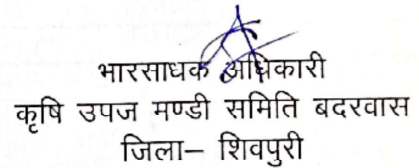 भारसाधक अधिकारी
कृषि उपज मण्डी समिति बदरवास
जिला– शिवपुरी